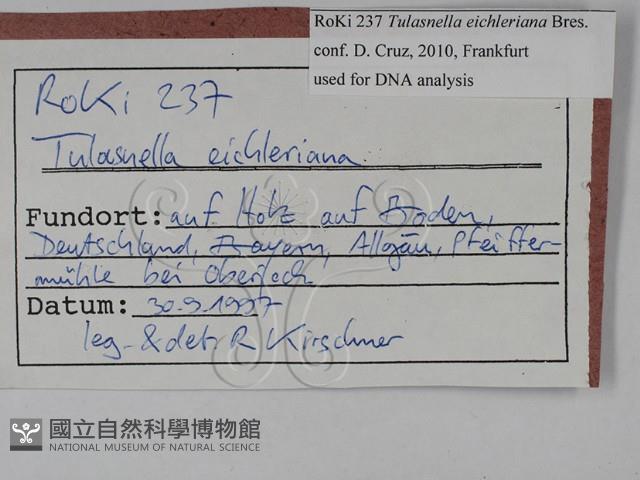 RoKi 237 Tulasnella eichleriana Bres.
conf. D. Cruz, 2010, Frankfurt
used for DNA analysis
RoKi 237
Tulasnella eichleriana
Fundort: auf Holz auf Boden,
Deutschland, Bayern, Allgäu, Pfeiffer-
mühle bei Oberjoch
Datum: 30.9.1997
leg. & det. R Kirschner
國立自然科學博物館
NATIONAL MUSEUM OF NATURAL SCIENCE